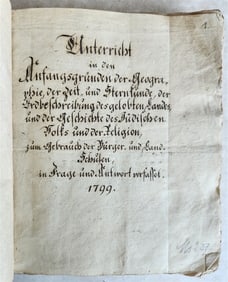 1.
Unterricht
in den
Anfangsgründen der Geogra-
phie, der Zeit, und Sternkunde, der
Erdbeschreibung des gelobten Landes
und der Geschichte des Jüdischen
Volks und der Religion,
zum Gebrauch der Bürger- und Land-
Schulen,
in Frage und Antwort verfasset.
1799.